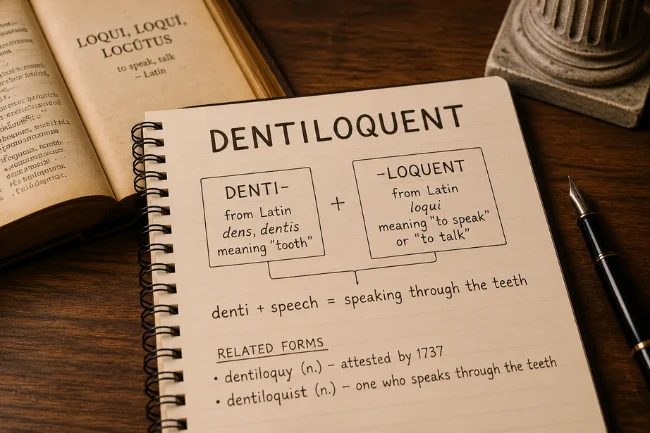 LOQUI, LOQUĪ,
LOCŪTUS
to speak, talk
– Latin
DENTILOQUENT
DENTI–
from Latin
dens, dentis
meaning “tooth”
+
–LOQUENT
from Latin
loqui
meaning “to speak”
or “to talk”
denti + speech = speaking through the teeth
RELATED FORMS
• dentiloquy (n.) – attested by 1737
• dentiloquist (n.) – one who speaks through the teeth